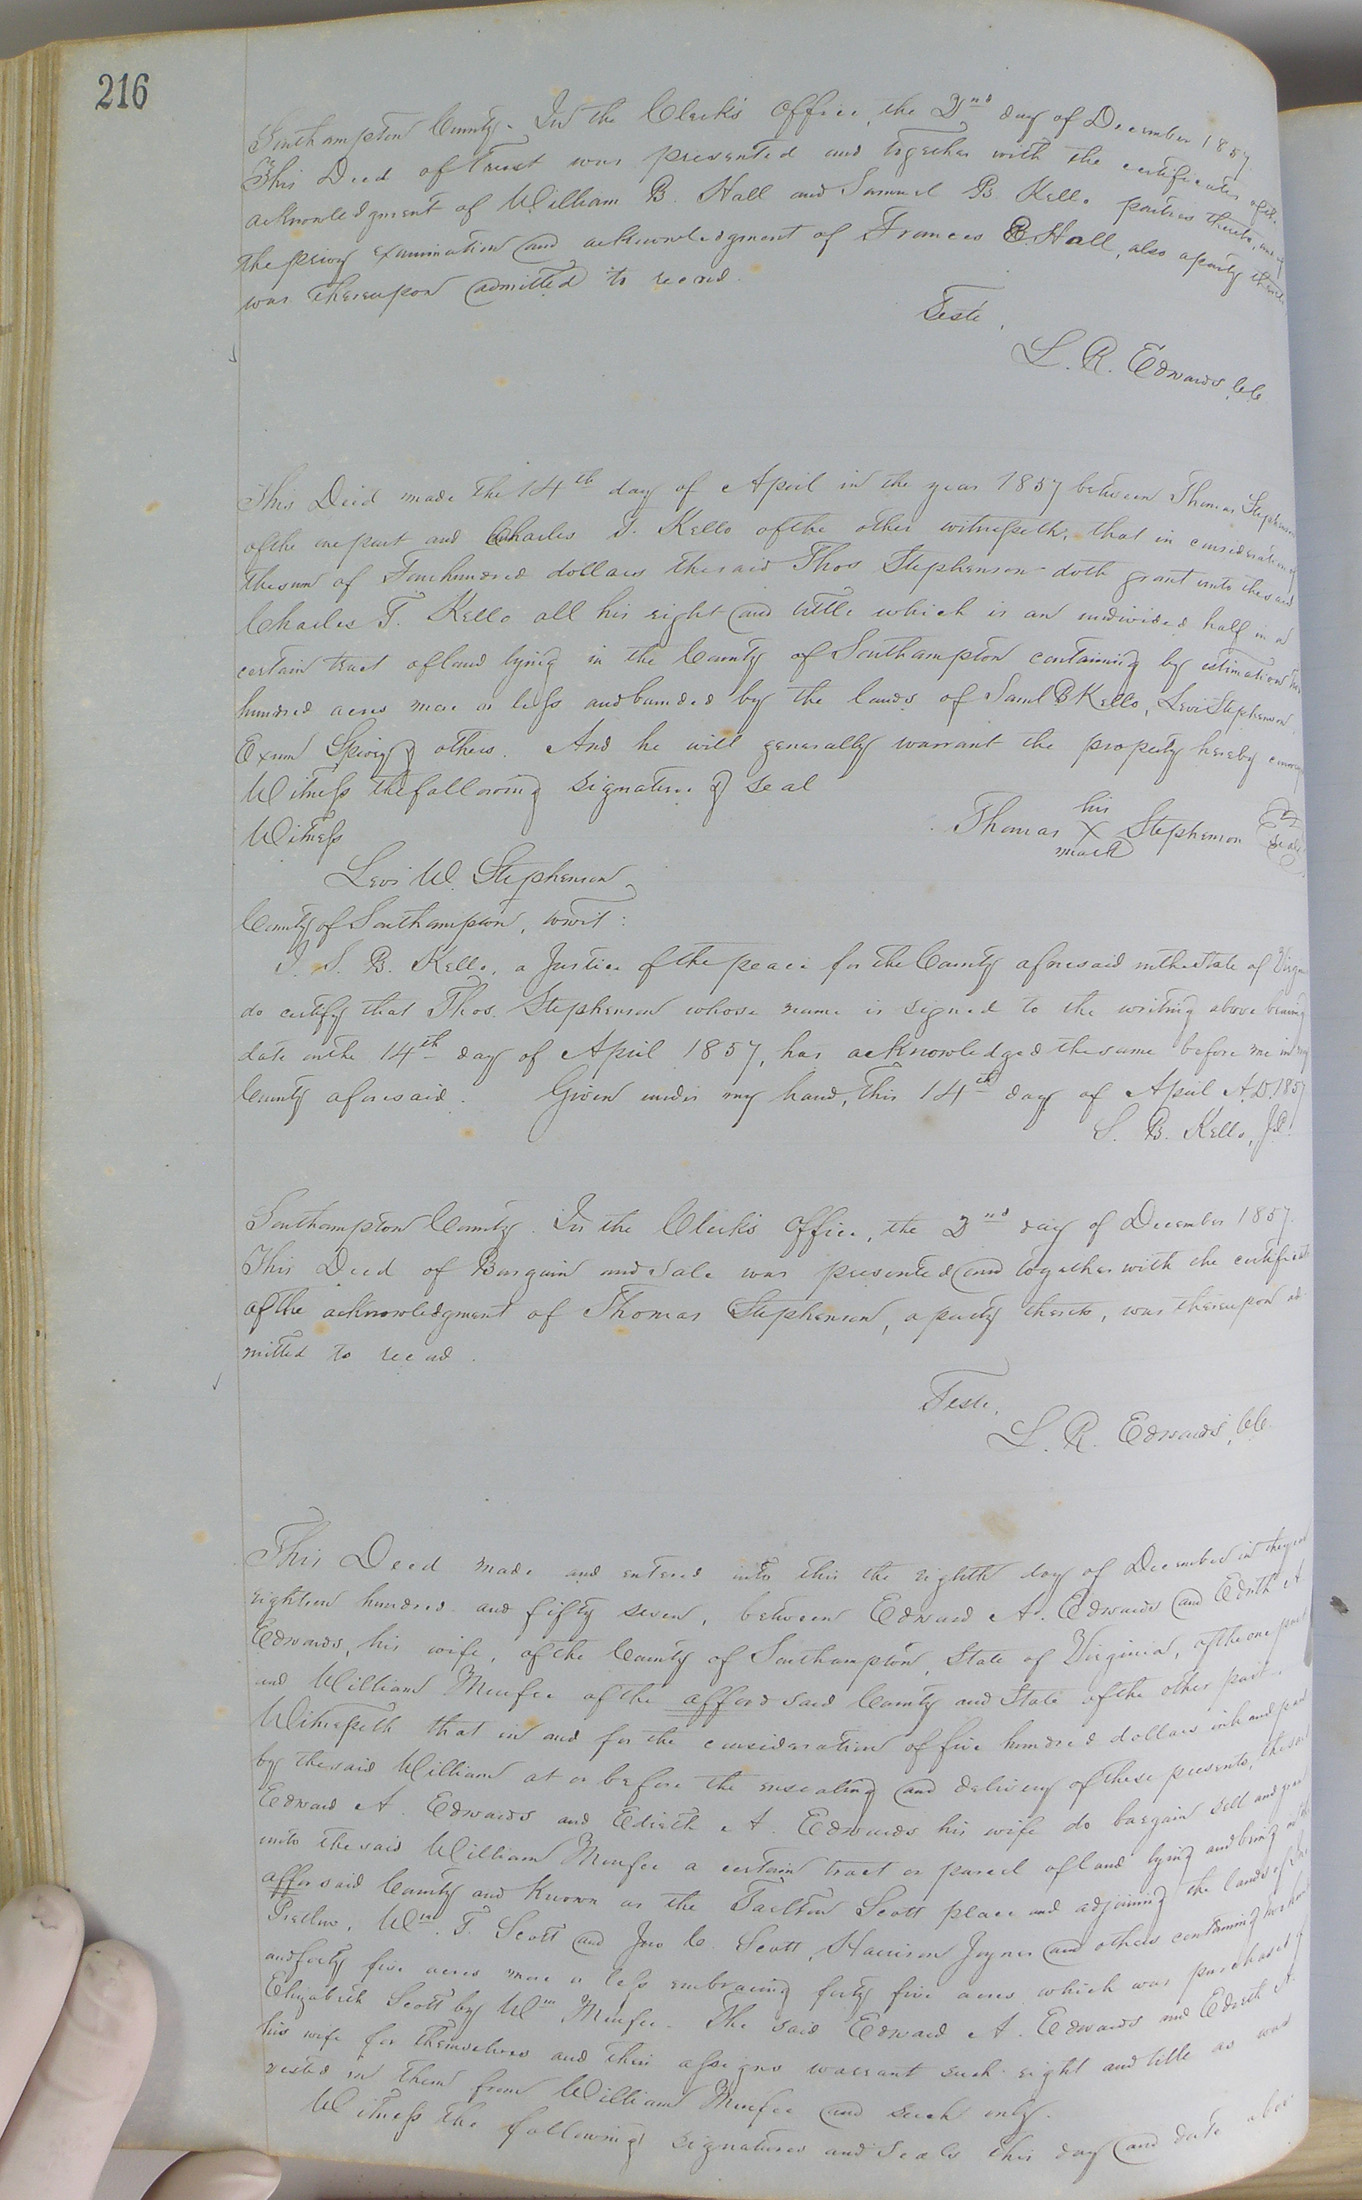 216
Southampton County. In the Clerk's Office, the 2nd day of December 1857.
This Deed of Trust was presented and together with the certificates of the
acknowledgment of William B. Hall and Samuel B. Kello parties thereto, and of
the privy examination and acknowledgment of Frances B Hall, also a party thereto
was thereupon admitted to record.
Teste,
L. R. Edwards, CC
This Deed made the 14th day of April in the year 1857 between Thomas Stephenson
of the one part and Charles T. Kello of the other witnesseth, that in consideration of
the sum of Four hundred dollars the said Thos Stephenson doth grant unto the said
Charles T. Kello all his right and tittle which is an undivided half in a
certain tract of land lying in the County of Southampton containing by estimation
hundred acres more or less and bounded by the lands of Saml B Kello, Levi Stephenson
Exum Spivey & others. And he will generally warrant the property hereby
Witness the following signature & seal
Witness
Thomas his X mark Stephenson Seal
Levi W. Stephenson
County of Southampton, towit:
I, S. B. Kello, a Justice of the peace for the County aforesaid in the State of Virginia
do certify that Thos. Stephenson whose name is signed to the writing above bearing
date on the 14th day of April 1857, has acknowledged the same before me in my
County aforesaid. Given under my hand, this 14th day of April A.D. 1857
S. B. Kello, J.P.
Southampton County. In the Clerk's Office, the 2nd day of December 1857.
This Deed of Bargain and Sale was presented and together with the certificate
of the acknowledgment of Thomas Stephenson, a party thereto, was thereupon ad
mitted to record.
Teste,
L. R. Edwards, CC
This Deed made and entered into this the eighth day of December in the year
eighteen hundred and fifty seven, between Edward A. Edwards and Edith A.
Edwards, his wife, of the County of Southampton, State of Virginia, of the one part
and William Minfee of the afford said County and State of the other part
Witnesseth that in and for the consideration of five hundred dollars in hand paid
by the said William at or before the ensealing and delivery of these presents, the said
Edward A. Edwards and Edieth A. Edwards his wife do bargain sell and
unto the said William Minfee a certain tract or parcel of land lying and being in the
affor said County and known as the Tarlton Scott place and adjoining the lands of
Pretlow, Wm. T. Scott and Jno C. Scott, Harrison Joyner and others containing
and forty five acres more or less embracing forty five acres which was purchased of
Elizabeth Scott by Wm Minfee. The said Edward A. Edwards and Edieth A.
his wife for themselves and their assigns warrant such right and title as was
vested in them from William Minfee and such only.
Witness the following signatures and seals this day and date above